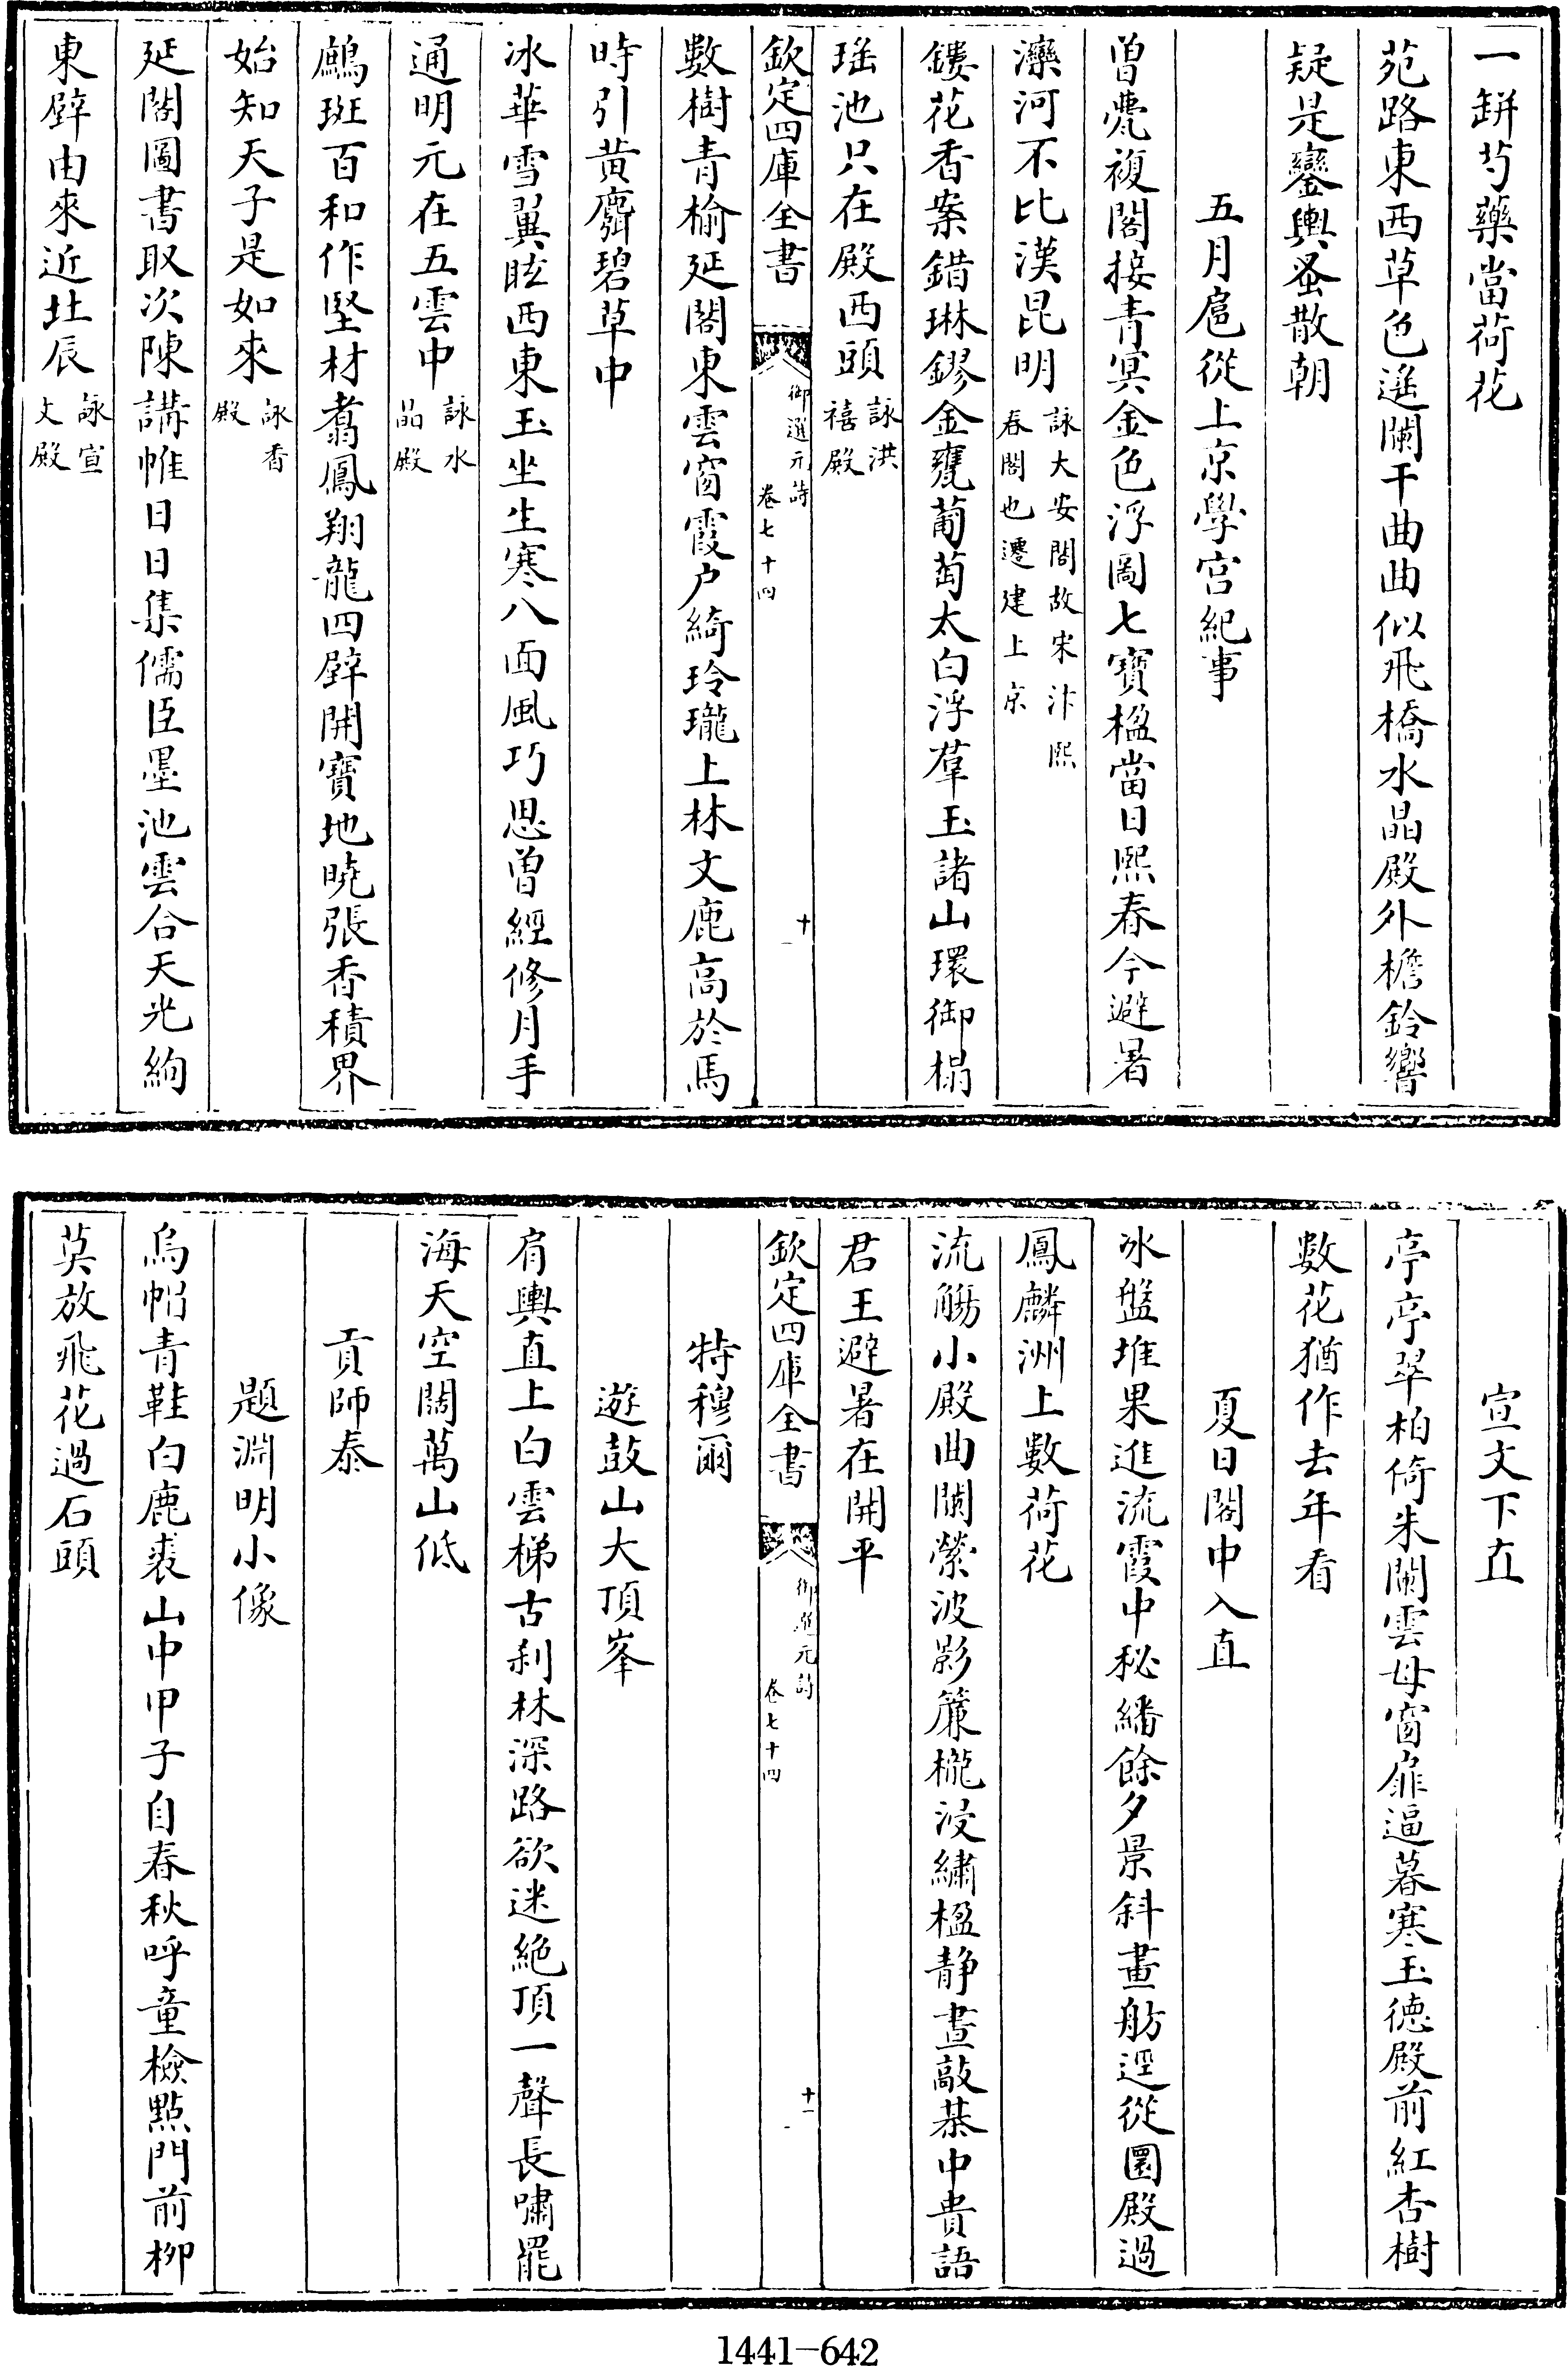 一缾芍藥當荷花
苑路東西草色遥闌干曲曲似飛橋水晶殿外檐鈴響
疑是鑾輿蚤散朝
五月扈從上京學宫紀事
曽甍複閣接青冥金色浮圖七寶楹當日熙春今避暑
灤河不比漢昆明詠大安閣故宋汴熙春閣也遷建上京
鏤花香案錯琳鏐金甕葡萄太白浮羣玉諸山環御榻
瑶池只在殿西頭詠洪禧殿
欽定四庫全書 御選元詩 卷七十四 十
數樹青榆延閣東雲窗霞户綺玲瓏上林文鹿高於馬
時引黄麝碧草中
冰華雪翼眩西東玉坐生寒八面風巧思曽經修月手
通明元在五雲中詠水晶殿
鷓斑百和作堅材翥鳳翔龍四壁開寶地曉張香積界
始知天子是如來詠香殿
延閣圖書取次陳講帷日日集儒臣墨池雲合天光絢
東壁由來近北辰詠宣文殿
宣文下直
亭亭翠柏倚朱闌雲母窗扉逼暮寒玉德殿前紅杏樹
數花猶作去年看
夏日閣中入直
冰盤堆果進流霞中秘繙餘夕景斜畫舫逕從圜殿過
鳳麟洲上數荷花
流觴小殿曲闌縈波影簾櫳浸繡楹静晝敲棊中貴語
君王避暑在開平
欽定四庫全書 御選元詩 卷七十四 十一
特穆爾
遊鼓山大頂峯
肩輿直上白雲梯古刹林深路欲迷絶頂一聲長嘯罷
海天空闊萬山低
貢師泰
題淵明小像
烏帽青鞋白鹿裘山中甲子自春秋呼童檢點門前栁
莫放飛花過石頭
1441—642